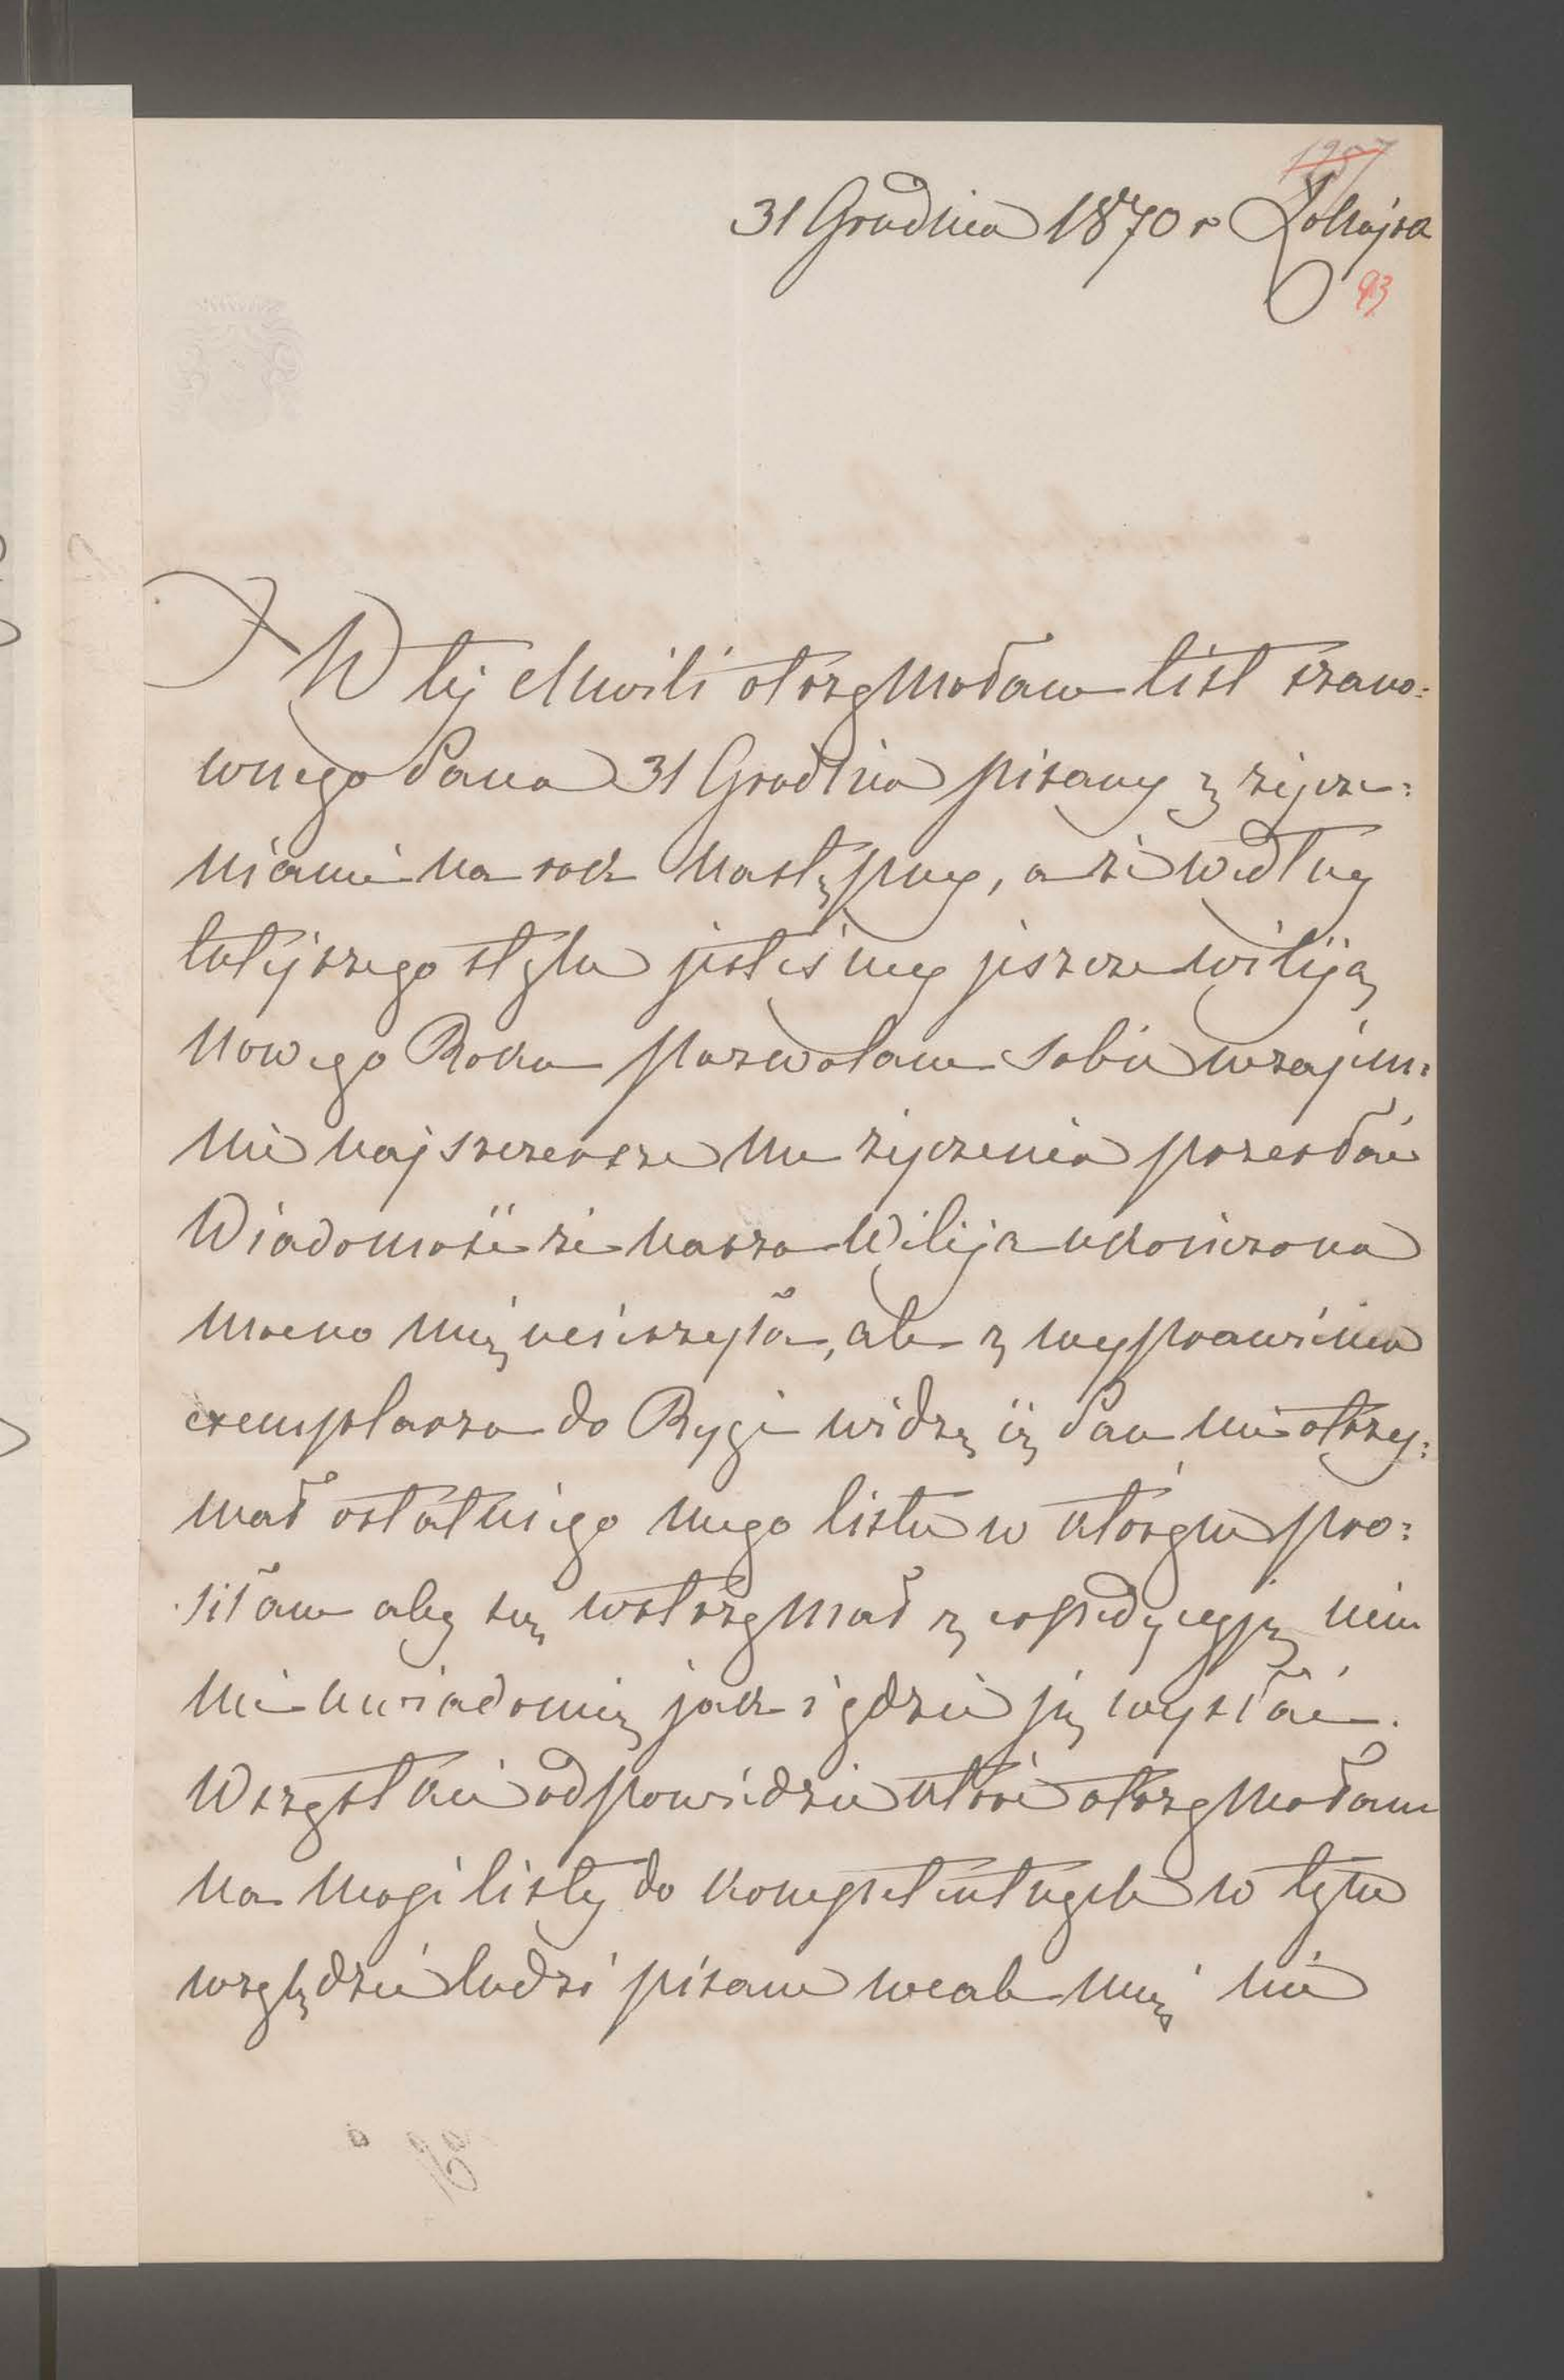 1287
31 Grudnia 1870 r Łohojsk
93
W tej chwili otrzymałam list szano:
wnego Pana 31 Grudnia pisany z życze:
niami na rok następny, a że według
tutejszego stylu jesteśmy jeszcze wiliją
nowego Roku pozwalam sobie wzajem:
nie najszczersze me życzenia przesłać
Wiadomość że nasza Wilija ukończona
mocno mię ucieszyła, ale z wyprawienia
exemplarza do Rygi widzę iż Pan nie otrzy:
mał ostatniego mego listu w którym pro:
siłam aby się wstrzymał z expedycyją nim
nie uwiadomię jak i gdzie ją wysłać.
Wszystkie odpowiedzie które otrzymałam
na moje listy do kompetentnych w tym
względzie ludzi pisane wcale mię nie